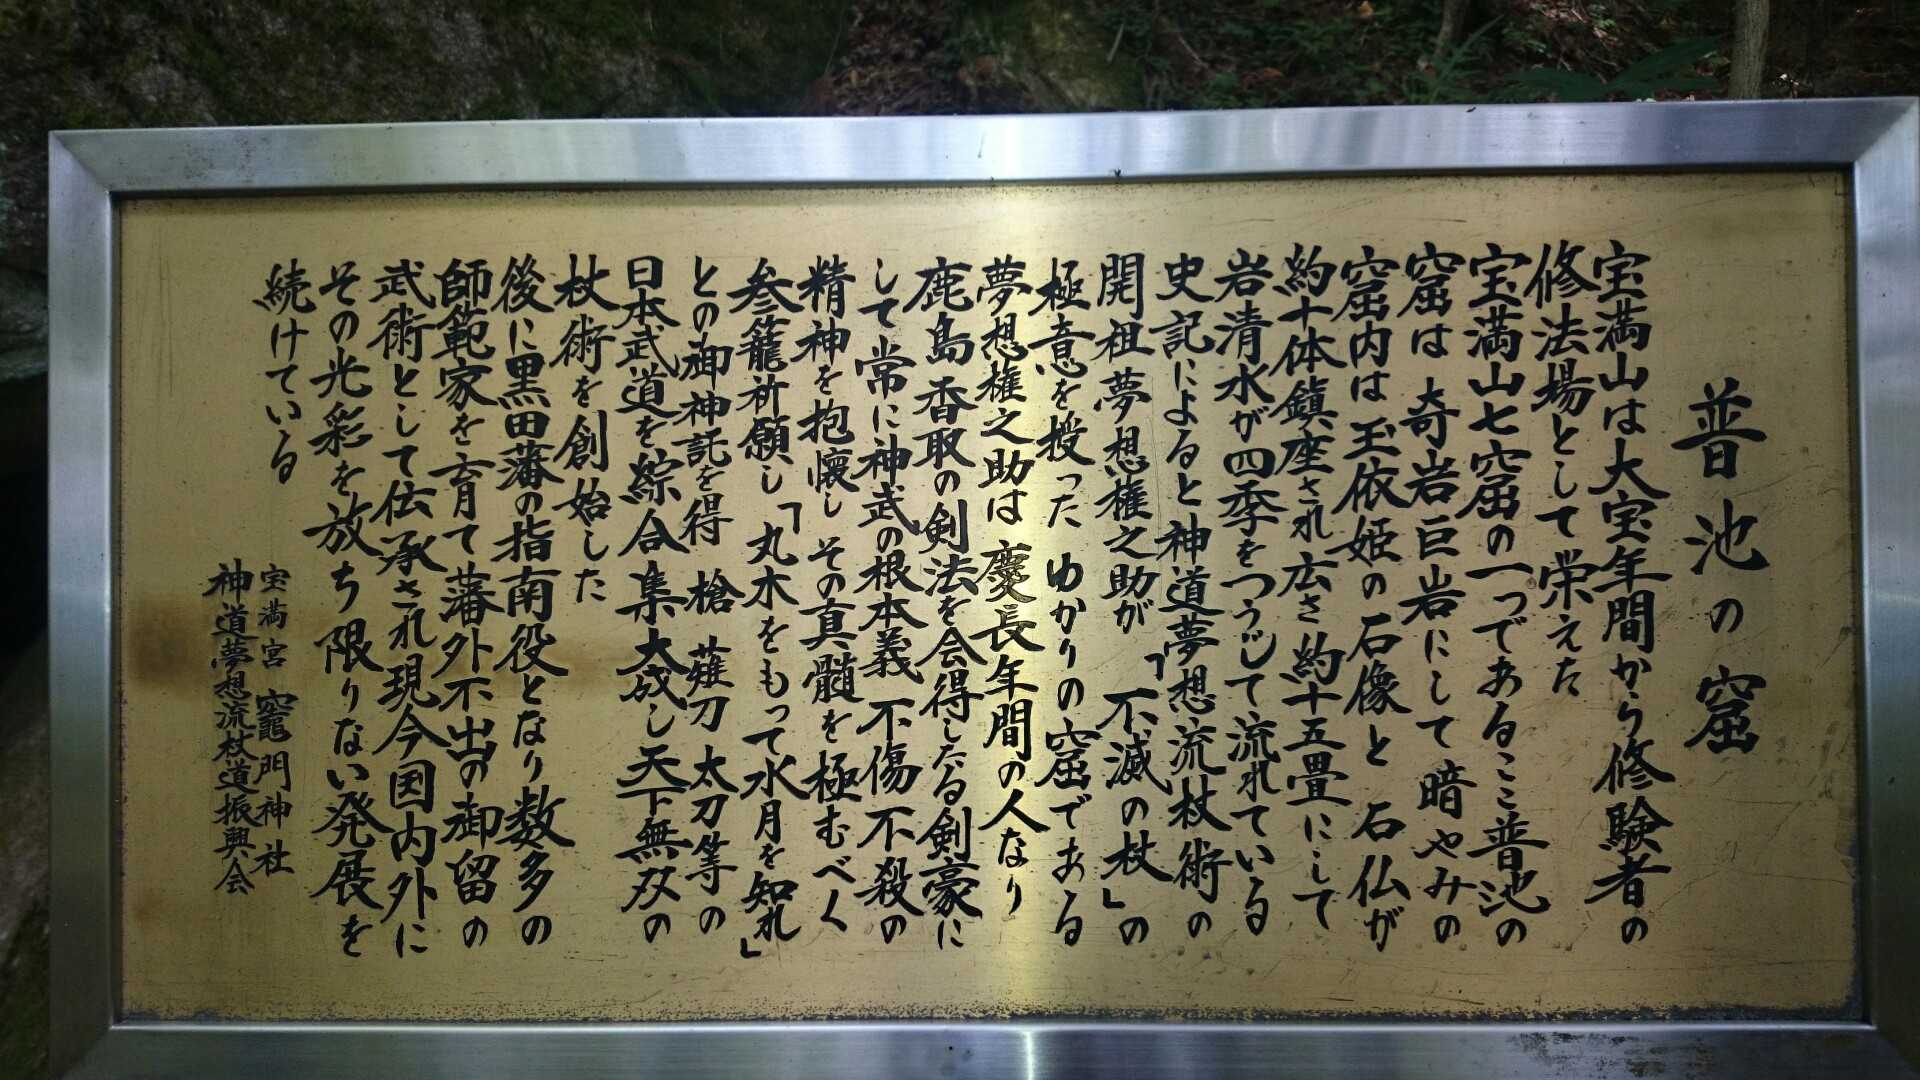 普池の窟
宝満山は大宝年間から修験者の
修法場として栄えた
宝満山七窟の一つであるここ普池の
窟は奇岩巨岩にして暗やみの
窟内は玉依姫の石像と石仏が
約十体鎮座され広さ約十五畳にして
岩清水が四季をつうじて流れている
史記によると神道夢想流杖術の
開祖夢想権之助が「不滅の杖」の
極意を授った ゆかりの窟である
夢想権之助は慶長年間の人なり
鹿島香取の剣法を会得したる剣豪に
して常に神武の根本義 不傷不殺の
精神を抱懐し その真髄を極むべく
参籠祈願し「丸木をもって水月を知れ」
との御神託を得 槍 薙刀 太刀等の
日本武道を綜合集大成し天下無双の
杖術を創始した
後に黒田藩の指南役となり数多の
師範家を育て藩外不出の御留の
武術として伝承され現今国内外に
その光彩を放ち限りない発展を
続けている
宝満宮 竈門神社
神道夢想流杖道振興会